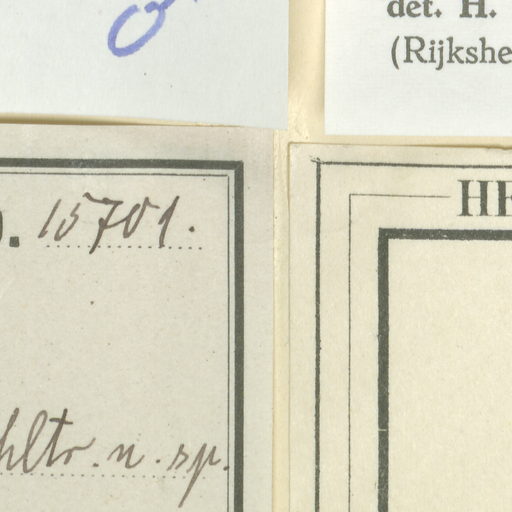 det. H.
(Rijkshe
). 15701.
HE
hltr. n. sp.